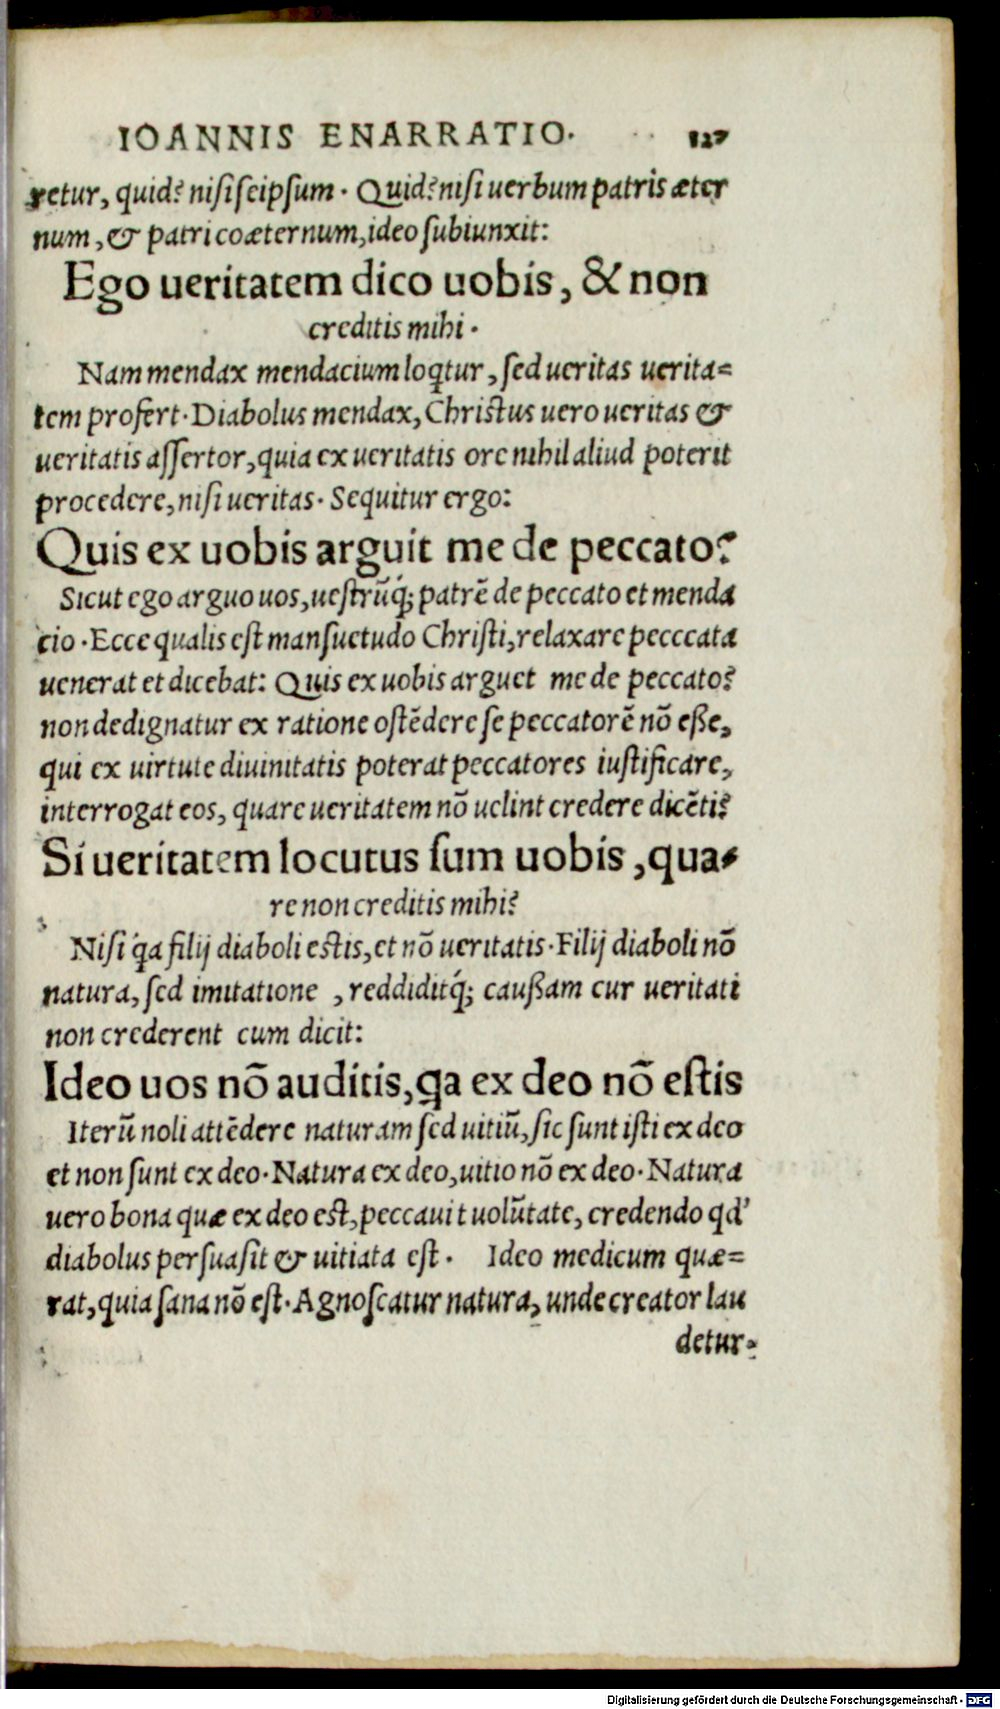 IOANNIS ENARRATIO. 127
retur, quid? nisi seipsum. Quid? nisi uerbum patris æter
num, & patri coæternum, ideo subiunxit:
Ego ueritatem dico uobis, & non
creditis mihi.
Nam mendax mendacium loqͥtur, sed ueritas uerita=
tem profert. Diabolus mendax, Christus uero ueritas &
ueritatis assertor, quia ex ueritatis ore nihil aliud poterit
procedere, nisi ueritas. Sequitur ergo:
Quis ex uobis arguit me de peccato?
Sicut ego arguo uos, uestrūq́; patrē de peccato et menda
cio. Ecce qualis est mansuetudo Christi, relaxare pecccata
uenerat et dicebat: Quis ex uobis arguet me de peccato?
non dedignatur ex ratione ostēdere se peccatorē nō eße,
qui ex uirtute diuinitatis poterat peccatores iustificare,
interrogat eos, quare ueritatem nō uelint credere dicēti?
Si ueritatem locutus sum uobis, qua=
re non creditis mihi?
Nisi qͥa filij diaboli estis, et nō ueritatis. Filij diaboli nō
natura, sed imitatione , reddiditq́; caußam cur ueritati
non crederent cum dicit:
Ideo uos nō auditis, qͥa ex deo nō estis
Iterū noli attēdere naturam sed uitiū, sic sunt isti ex deo
et non sunt ex deo. Natura ex deo, uitio nō ex deo. Natura
uero bona quæ ex deo est, peccauit uolūtate, credendo qd'
diabolus persuasit & uitiata est. Ideo medicum quæ=
rat, quia sana nō est. Agnoscatur natura, unde creator lau
detur.
Digitalisierung gefördert durch die Deutsche Forschungsgemeinschaft - DFG